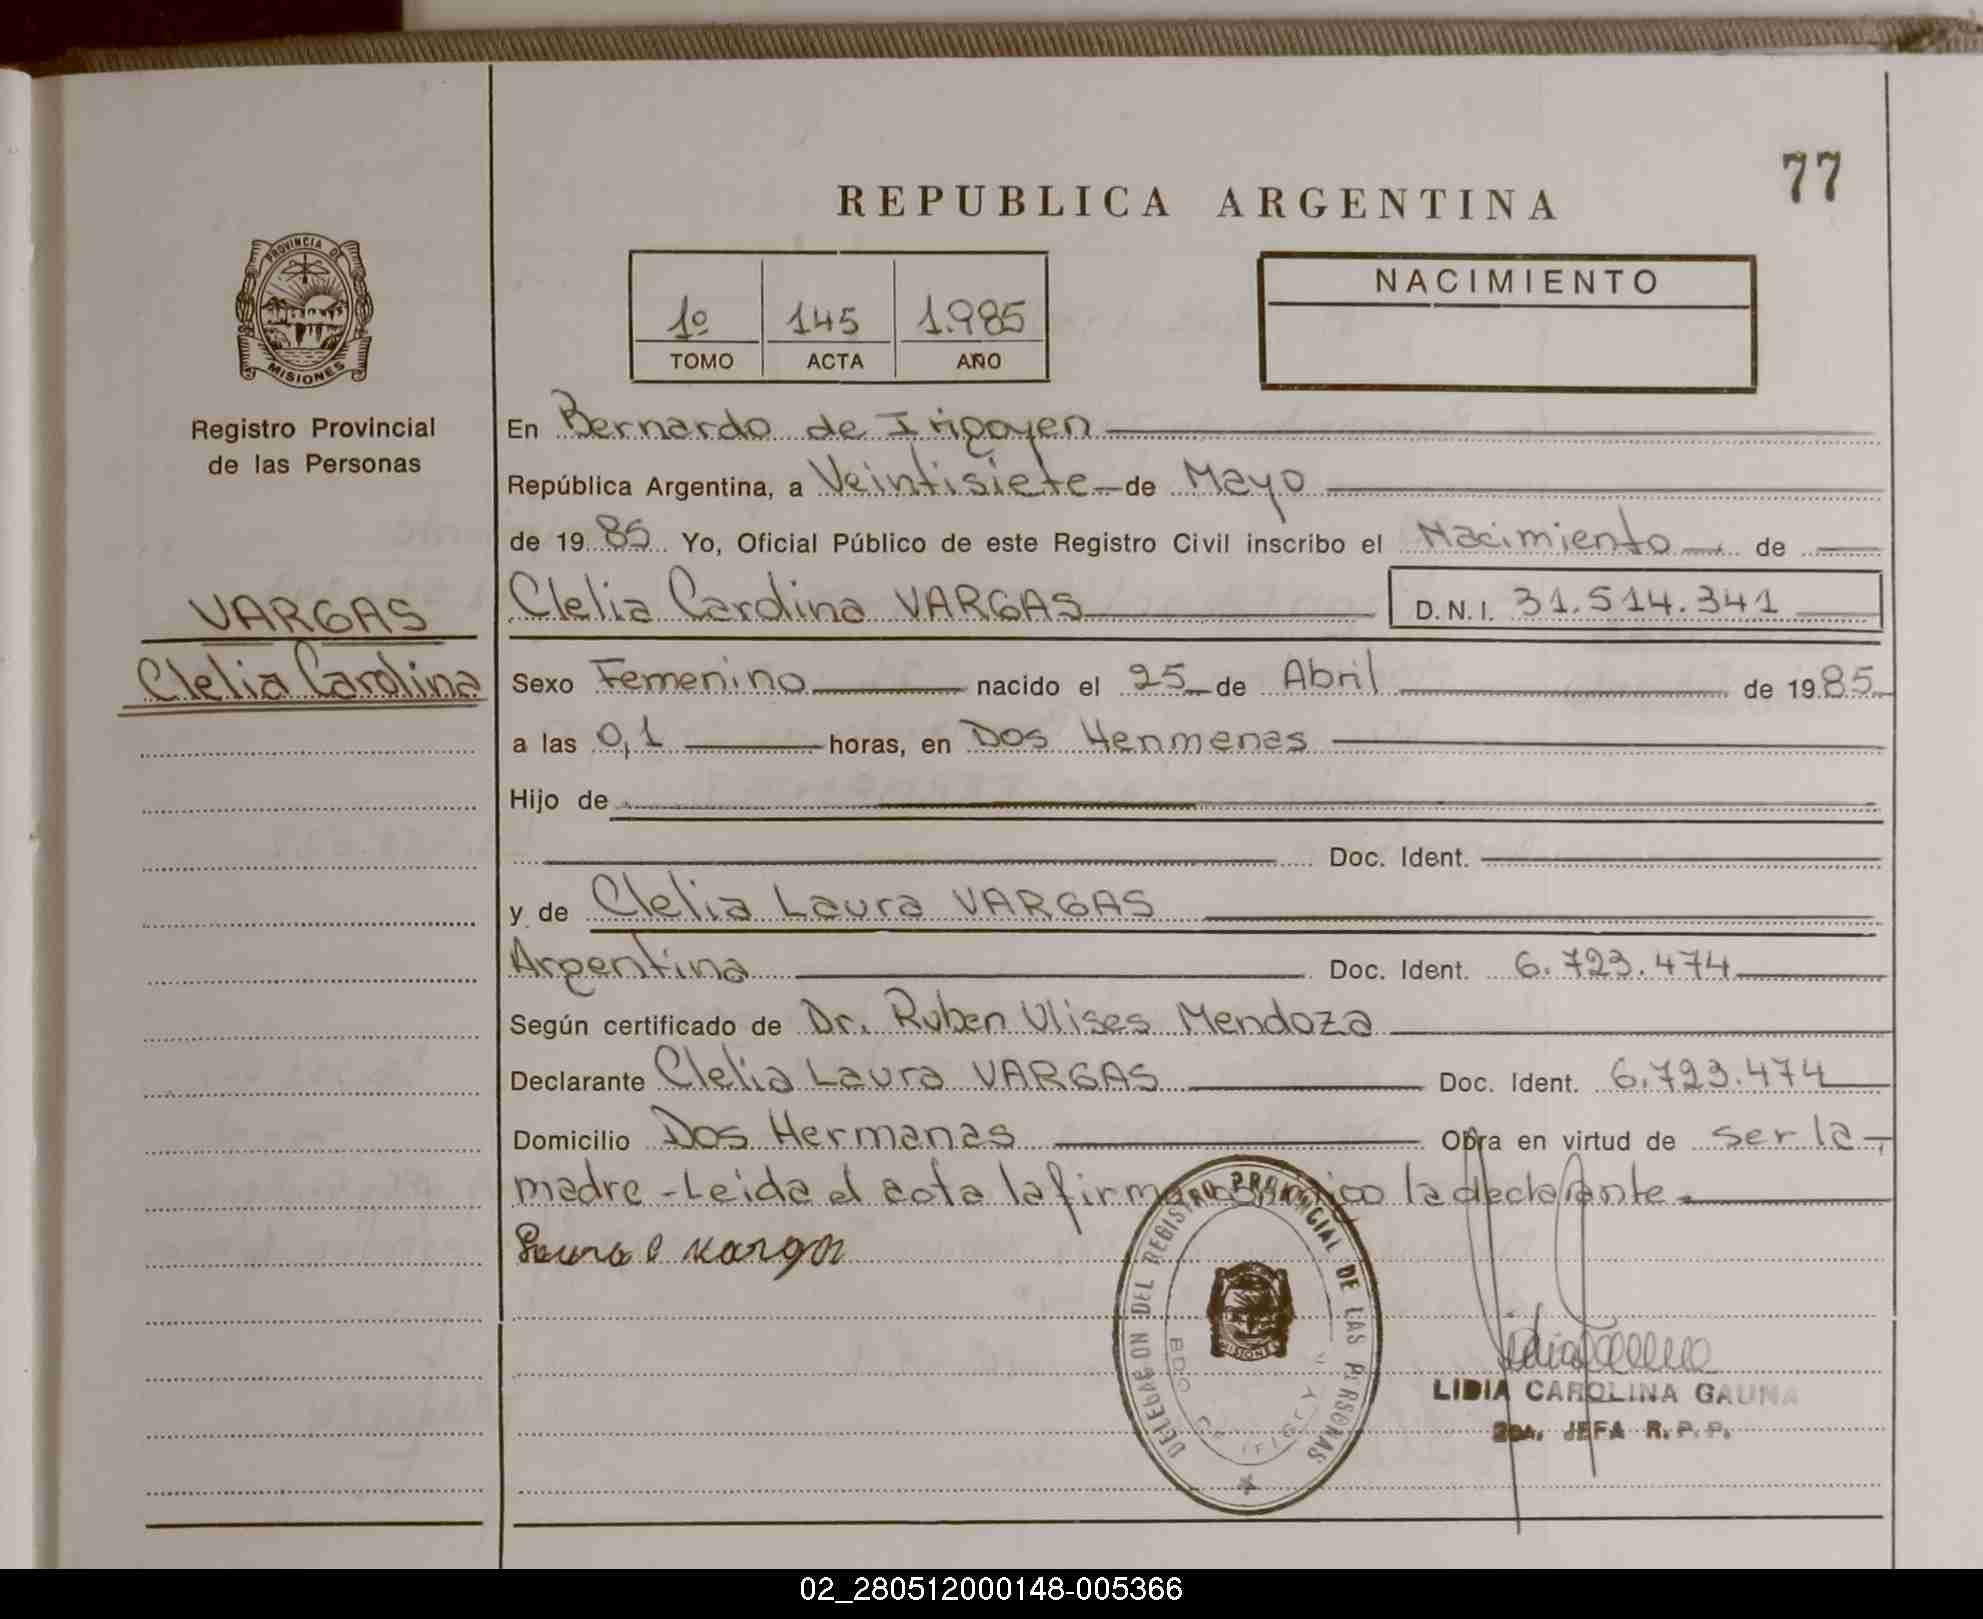 77
REPUBLICA ARGENTINA
PROVINCIA DE
MISIONES
Registro Provincial
de las Personas
1º 145 1.985
TOMO ACTA AÑO
NACIMIENTO
En Bernardo de Irigoyen
República Argentina, a Veintisiete de Mayo
de 1985 Yo, Oficial Público de este Registro Civil inscribo el Nacimiento de
VARGAS
Clelia Carolina
Clelia Carolina VARGAS D.N.I. 31.514.341
Sexo Femenino nacido el 25 de Abril de 1985
a las 0,1 horas, en Dos Hermanas
Hijo de
Doc. Ident.
y de Clelia Laura VARGAS
Argentina Doc. Ident. 6.723.474
Según certificado de Dr. Ruben Ulises Mendoza
Declarante Clelia Laura VARGAS Doc. Ident. 6.723.474
Domicilio Dos Hermanas Obra en virtud de ser la
madre - Leida el acta la firma la declarante
DELEGACION DEL REGISTRO PROVINCIAL DE LAS PERSONAS
MISIONES
LIDIA CAROLINA GAUNA
2DA. JEFA R.P.P.
02_280512000148-005366